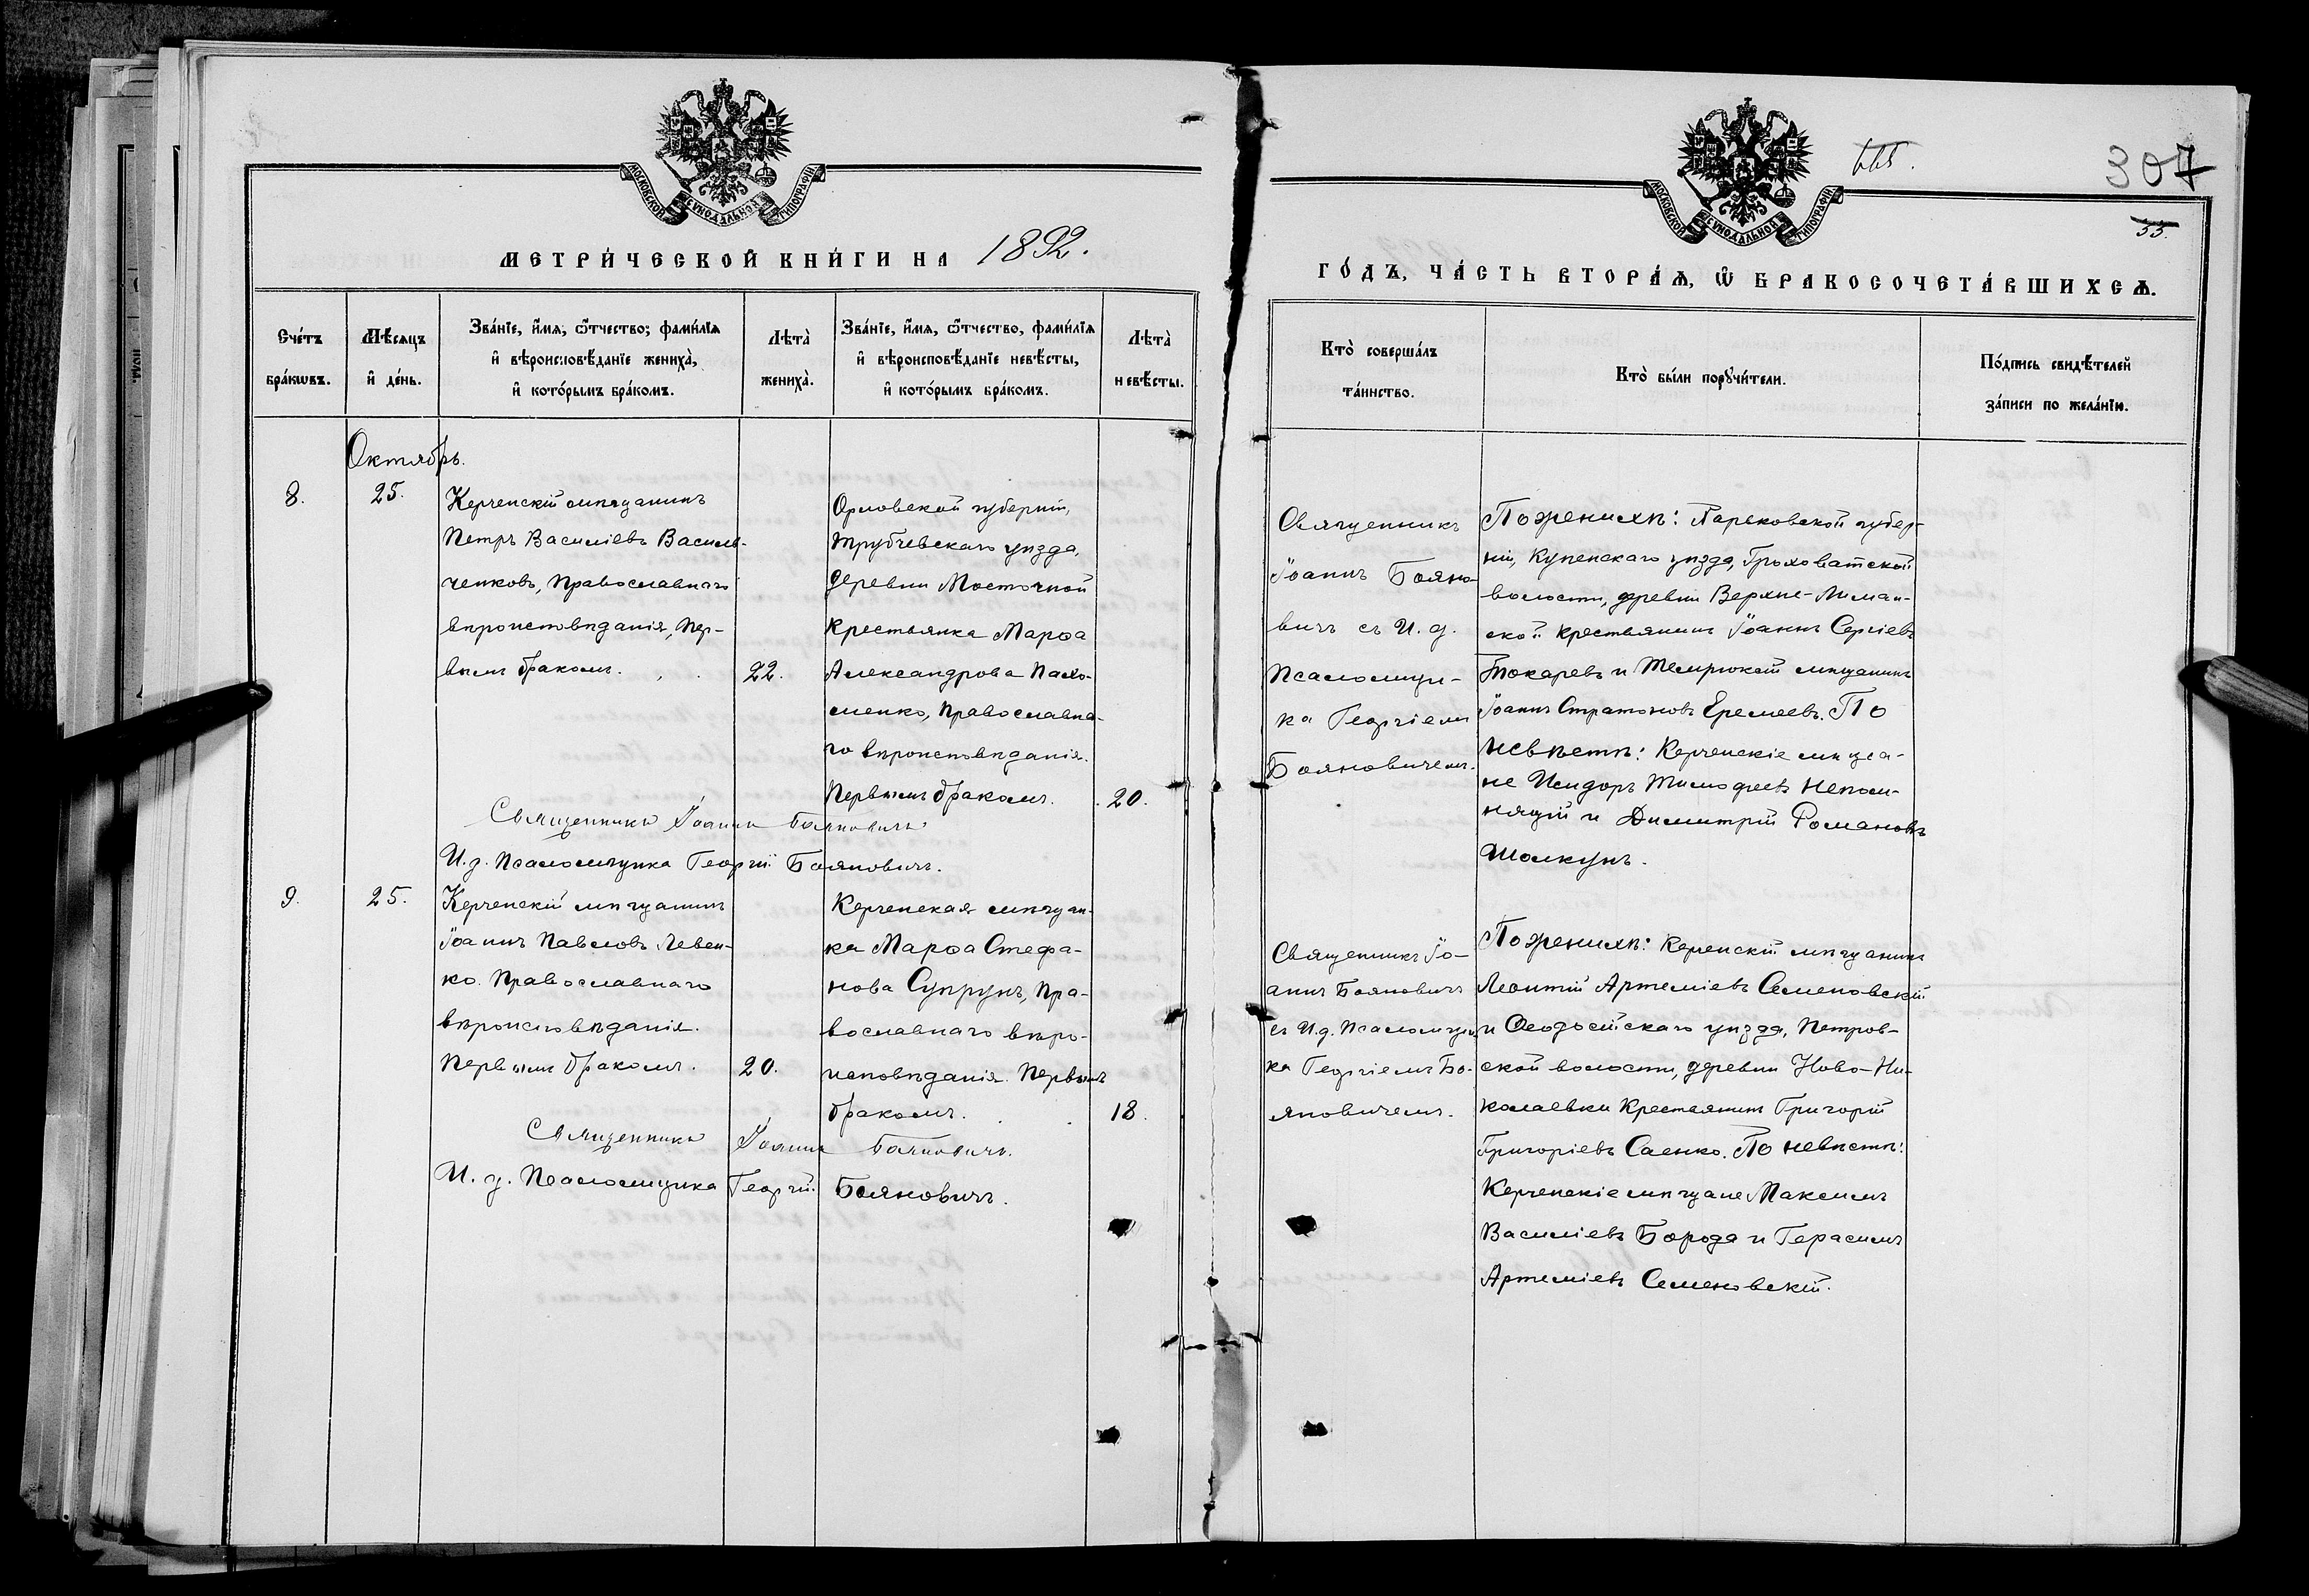 МОСКОВСКОЙ СѴНОДАЛЬНОЙ ТИПОГРАФІИ
МЕТРИ́ЧЕСКОЙ КНИ́ГИ НА 1892.
Сче́тъ бра́кѡвъ.
Мѣ́сяцъ и҆ де́нь.
Зва́нїе, и҆́мя, ѻ҆́тчество, фами́лїя
и҆ вѣроисповѣ́данїе жениха̀,
и҆ кото́рымъ бра́комъ.
Лѣта̀ жениха̀.
Зва́нїе, и҆́мя, ѻ҆́тчество, фами́лїя
и҆ вѣроисповѣ́данїе невѣ́сты,
и҆ кото́рымъ бра́комъ.
Лѣта̀ невѣ́сты.
Октябрь.
8.
25.
Керченскій мѣщанинъ
Петръ Василіевъ Василь-
ченковъ, Православнаго
вѣроисповѣданія, пер-
вымъ бракомъ.
22.
Орловской губерніи,
Трубчевскаго уѣзда,
деревни Мосточной
крестьянка Марѳа
Александрова Пахо-
менко, Православна-
го вѣроисповѣданія.
Первымъ бракомъ.
20.
Священникъ Іоаннъ Бояновичъ
И. д. Псаломщика Георгій Бояновичъ.
9.
25.
Керченскій мѣщанинъ
Іоаннъ Павловъ Левен-
ко. Православнаго
вѣроисповѣданія.
Первымъ бракомъ.
20.
Керченская мѣщан-
ка Марѳа Стефа-
нова Супрунъ, Пра-
вославнаго вѣро-
исповѣданія. Первымъ
бракомъ.
18.
Священникъ Іоаннъ Бояновичъ.
И. д. Псаломщика Георгій Бояновичъ.
МОСКОВСКОЙ СѴНОДАЛЬНОЙ ТИПОГРАФІИ
307
55.
ГО́ДЪ, ЧА́СТЬ ВТОРА́Ѧ, Ѽ БРАКОСОЧЕТА́ВШИХСѦ.
Кто̀ соверша́лъ
та́инство.
Кто̀ бы́ли порꙋчи́тели.
По́дпись свидѣ́телей
за́писи по жела́нїю.
Священникъ
Іоаннъ Бояно-
вичъ съ И. д.
Псаломщи-
ка Георгіемъ
Бояновичемъ.
По женихѣ: Харьковской губер-
ніи, Купенскаго уѣзда, Гроховатской
волости, деревни Верхне-Лиман-
ской крестьянинъ Іоаннъ Сергіевъ
Токаревъ и Темрюкскій мѣщанинъ
Іоаннъ Стратоновъ Еремеевъ. По
невѣстѣ: Керченскіе мѣща-
не Исидоръ Тимофеевъ Непом-
нящій и Димитрій Романовъ
Шолкунъ.
Священникъ Іо-
аннъ Бояновичъ
съ И. д. Псаломщи-
ка Георгіемъ Бо-
яновичемъ.
По женихѣ: Керченскій мѣщанинъ
Леонтій Артеміевъ Семеновскій
и Ѳеодосійскаго уѣзда, Петров-
ской волости, деревни Ново-Ни-
колаевки крестьянинъ Григорій
Григоріевъ Саенко. По невѣстѣ:
Керченскіе мѣщане Максимъ
Василіевъ Борода и Герасимъ
Артеміевъ Семеновскій.